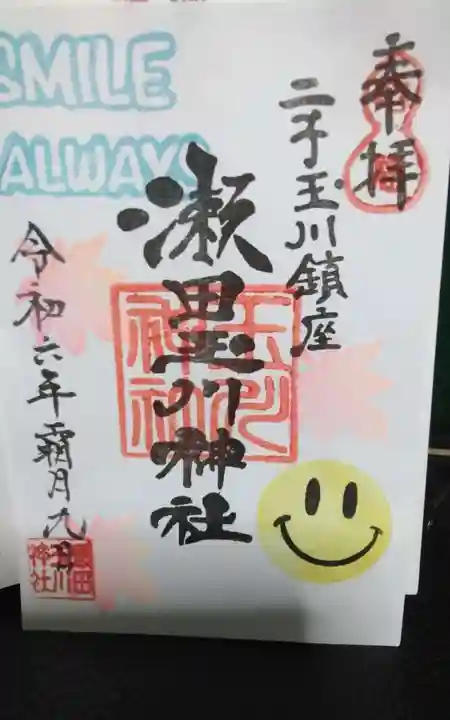 SMILE
ALWAYS
奉拝
二子玉川鎮座
瀬田玉川神社
令和六年霜月九日
玉川神社